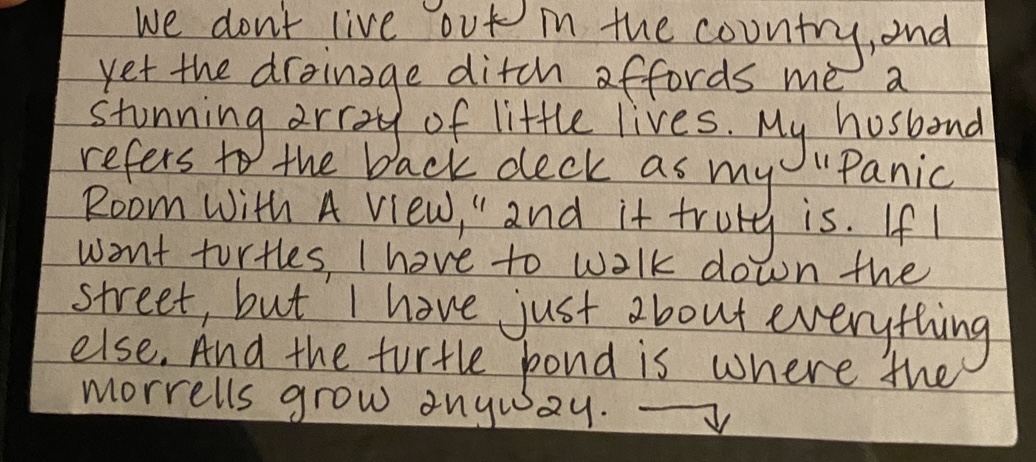 We don't live out in the country, and
yet the drainage ditch affords me a
stunning array of little lives. My husband
refers to the back deck as my "Panic
Room With A View," and it truly is. If I
want turtles, I have to walk down the
street, but I have just about everything
else. And the turtle pond is where the
morrells grow anyway. →